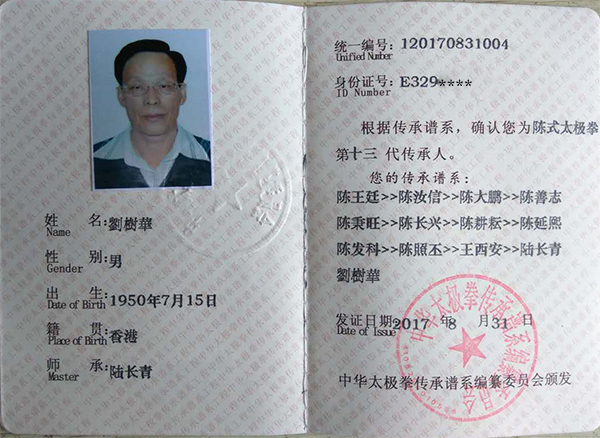 姓 名: 劉樹華
Name
性 别: 男
Gender
出 生: 1950年7月15日
Date of Birth
籍 贯: 香港
Place of Birth
师 承: 陆长青
Master
统一编号: 120170831004
Unified Number
身份证号: E329****
ID Number
根据传承谱系，确认您为陈式太极拳
第十三 代传承人。
您的传承谱系:
陈王廷>>陈汝信>>陈大鹏>>陈善志
陈秉旺>>陈长兴>>陈耕耘>>陈延熙
陈发科>>陈照丕>>王西安>>陆长青
劉樹華
发证日期: 2017 年 8 月 31 日
Date of Issue
中华太极拳传承谱系编纂委员会
中华太极拳传承谱系编纂委员会颁发